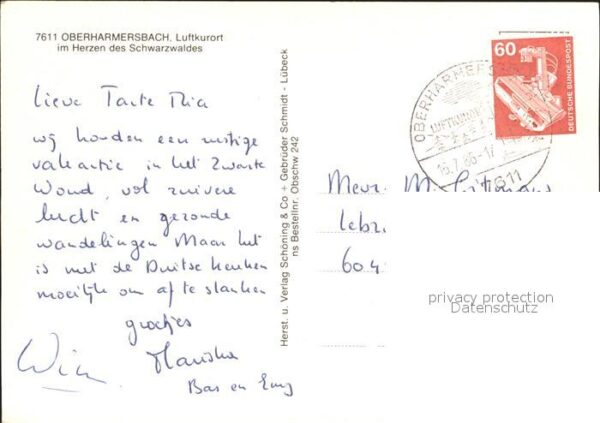 7611 OBERHARMERSBACH, Luftkurort
im Herzen des Schwarzwaldes
Lieve Tante Mia
wij houden een rustige
vakantie in het Zwarte
Woud, vol zuivere
lucht en gezonde
wandelingen Maar het
is met de Duitse keuken
moeilijk om af te slanken
groetjes
Wim Mariska
Bas en
Herst. u. Verlag Schöning & Co + Gebrüder Schmidt - Lübeck
ns Bestellnr. Obschw 242
60
DEUTSCHE BUNDESPOST
OBERHARMERS
LUFTKURORT
16.7.86-1
7611
Mevr. M.
604
privacy protection
Datenschutz